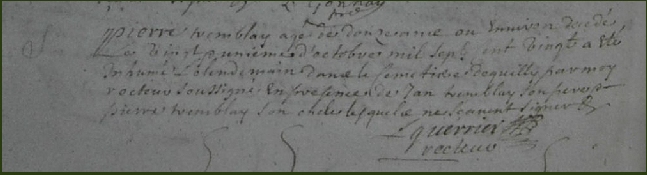 pierre tremblay agé de donze ans ou Environ decedé
Le vingt uniéme d'octobre mil sept cent vingt a Eté
Inhumé Lelendemain dans le semetiere de quilly par moy
recteur soussigné En presence de Jan tremblay son frere
pierre tremblay son lesquels ne sçavent signer
guerrier
recteur